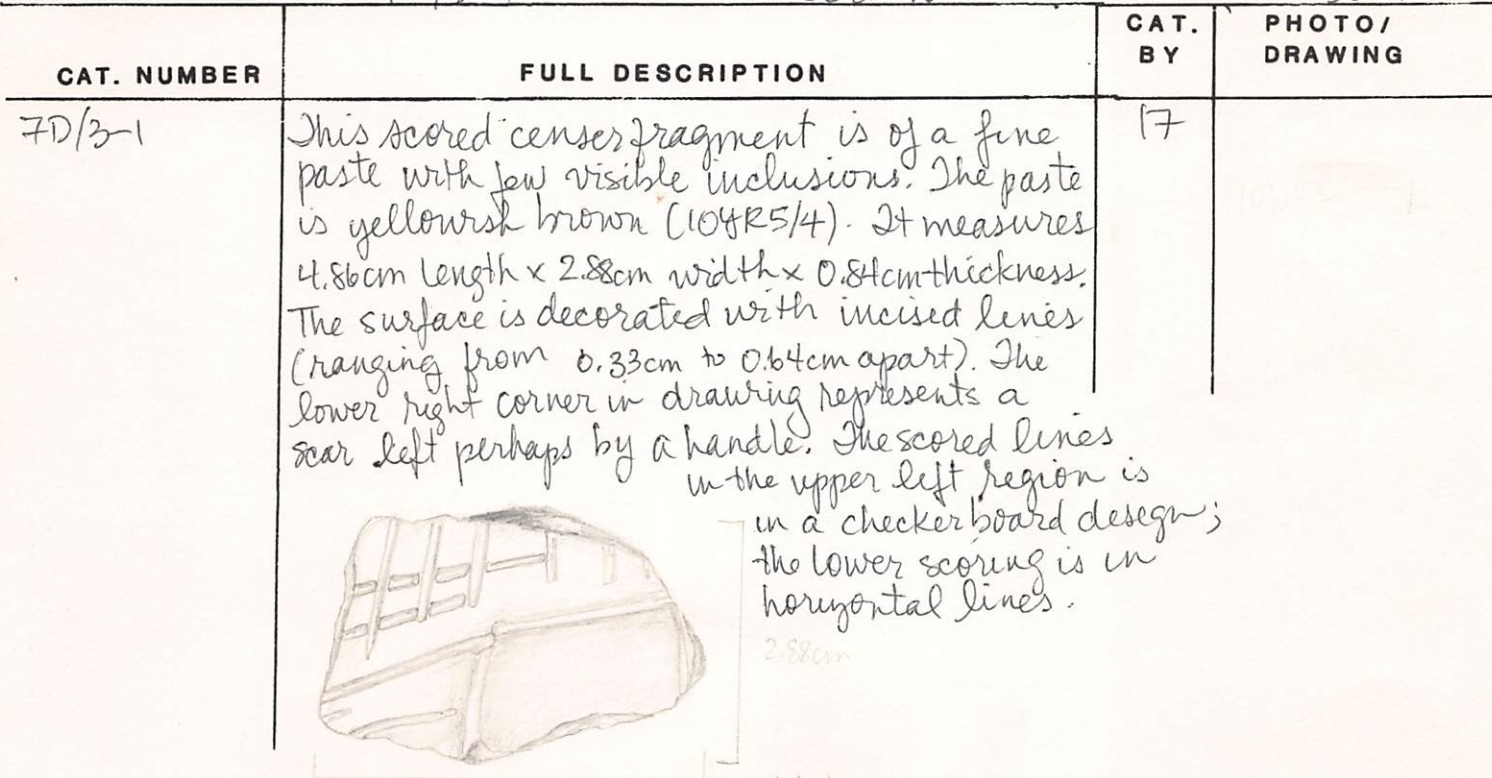 CAT. NUMBER
FULL DESCRIPTION
CAT.
BY
PHOTO/
DRAWING
7D/3-1
17
This scored censer fragment is of a fine
paste with few visible inclusions. The paste
is yellowish brown (10YR5/4). It measures
4.86cm length x 2.88cm width x 0.84cm thickness.
The surface is decorated with incised lines
(ranging from 0.33cm to 0.64cm apart). The
lower right corner in drawing represents a
scar left perhaps by a handle. The scored lines
in the upper left region is
in a checkerboard design;
the lower scoring is in
horizontal lines.
2.88cm